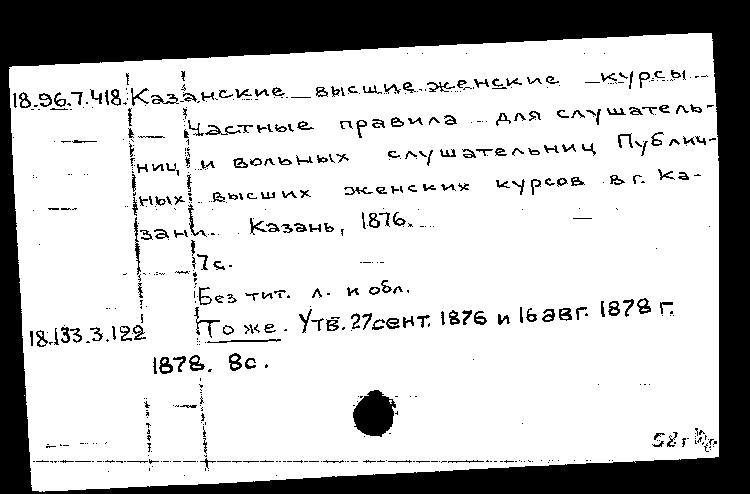 18.96.7.418. Казанские высшие женские курсы
Частные правила для слушатель-
ниц и вольных слушательниц Публич-
ных высших женских курсов в г. Ка-
зани. Казань, 1876.
7с.
Без тит. л. и обл.
18.133.3.122 То же. Утв. 27 сент. 1876 и 16 авг. 1878 г.
1878. 8с.
58г